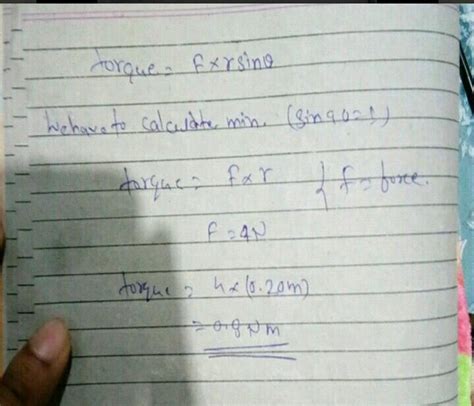 torque = F × r sinθ
We have to calculate min. (sin 90 = 1)
torque = F × r { f = force.
F = 4N
torque = 4 × (0.20m)
= 0.8 Nm